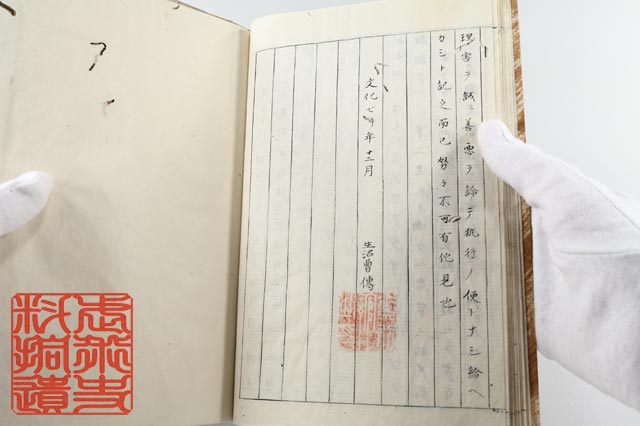 理害ヲ誠ニ善悪ヲ論テ執行ノ便トナシ給ヘ
カシト記之而已努々不可有他見也
文化七午年十二月 生沼曹傳